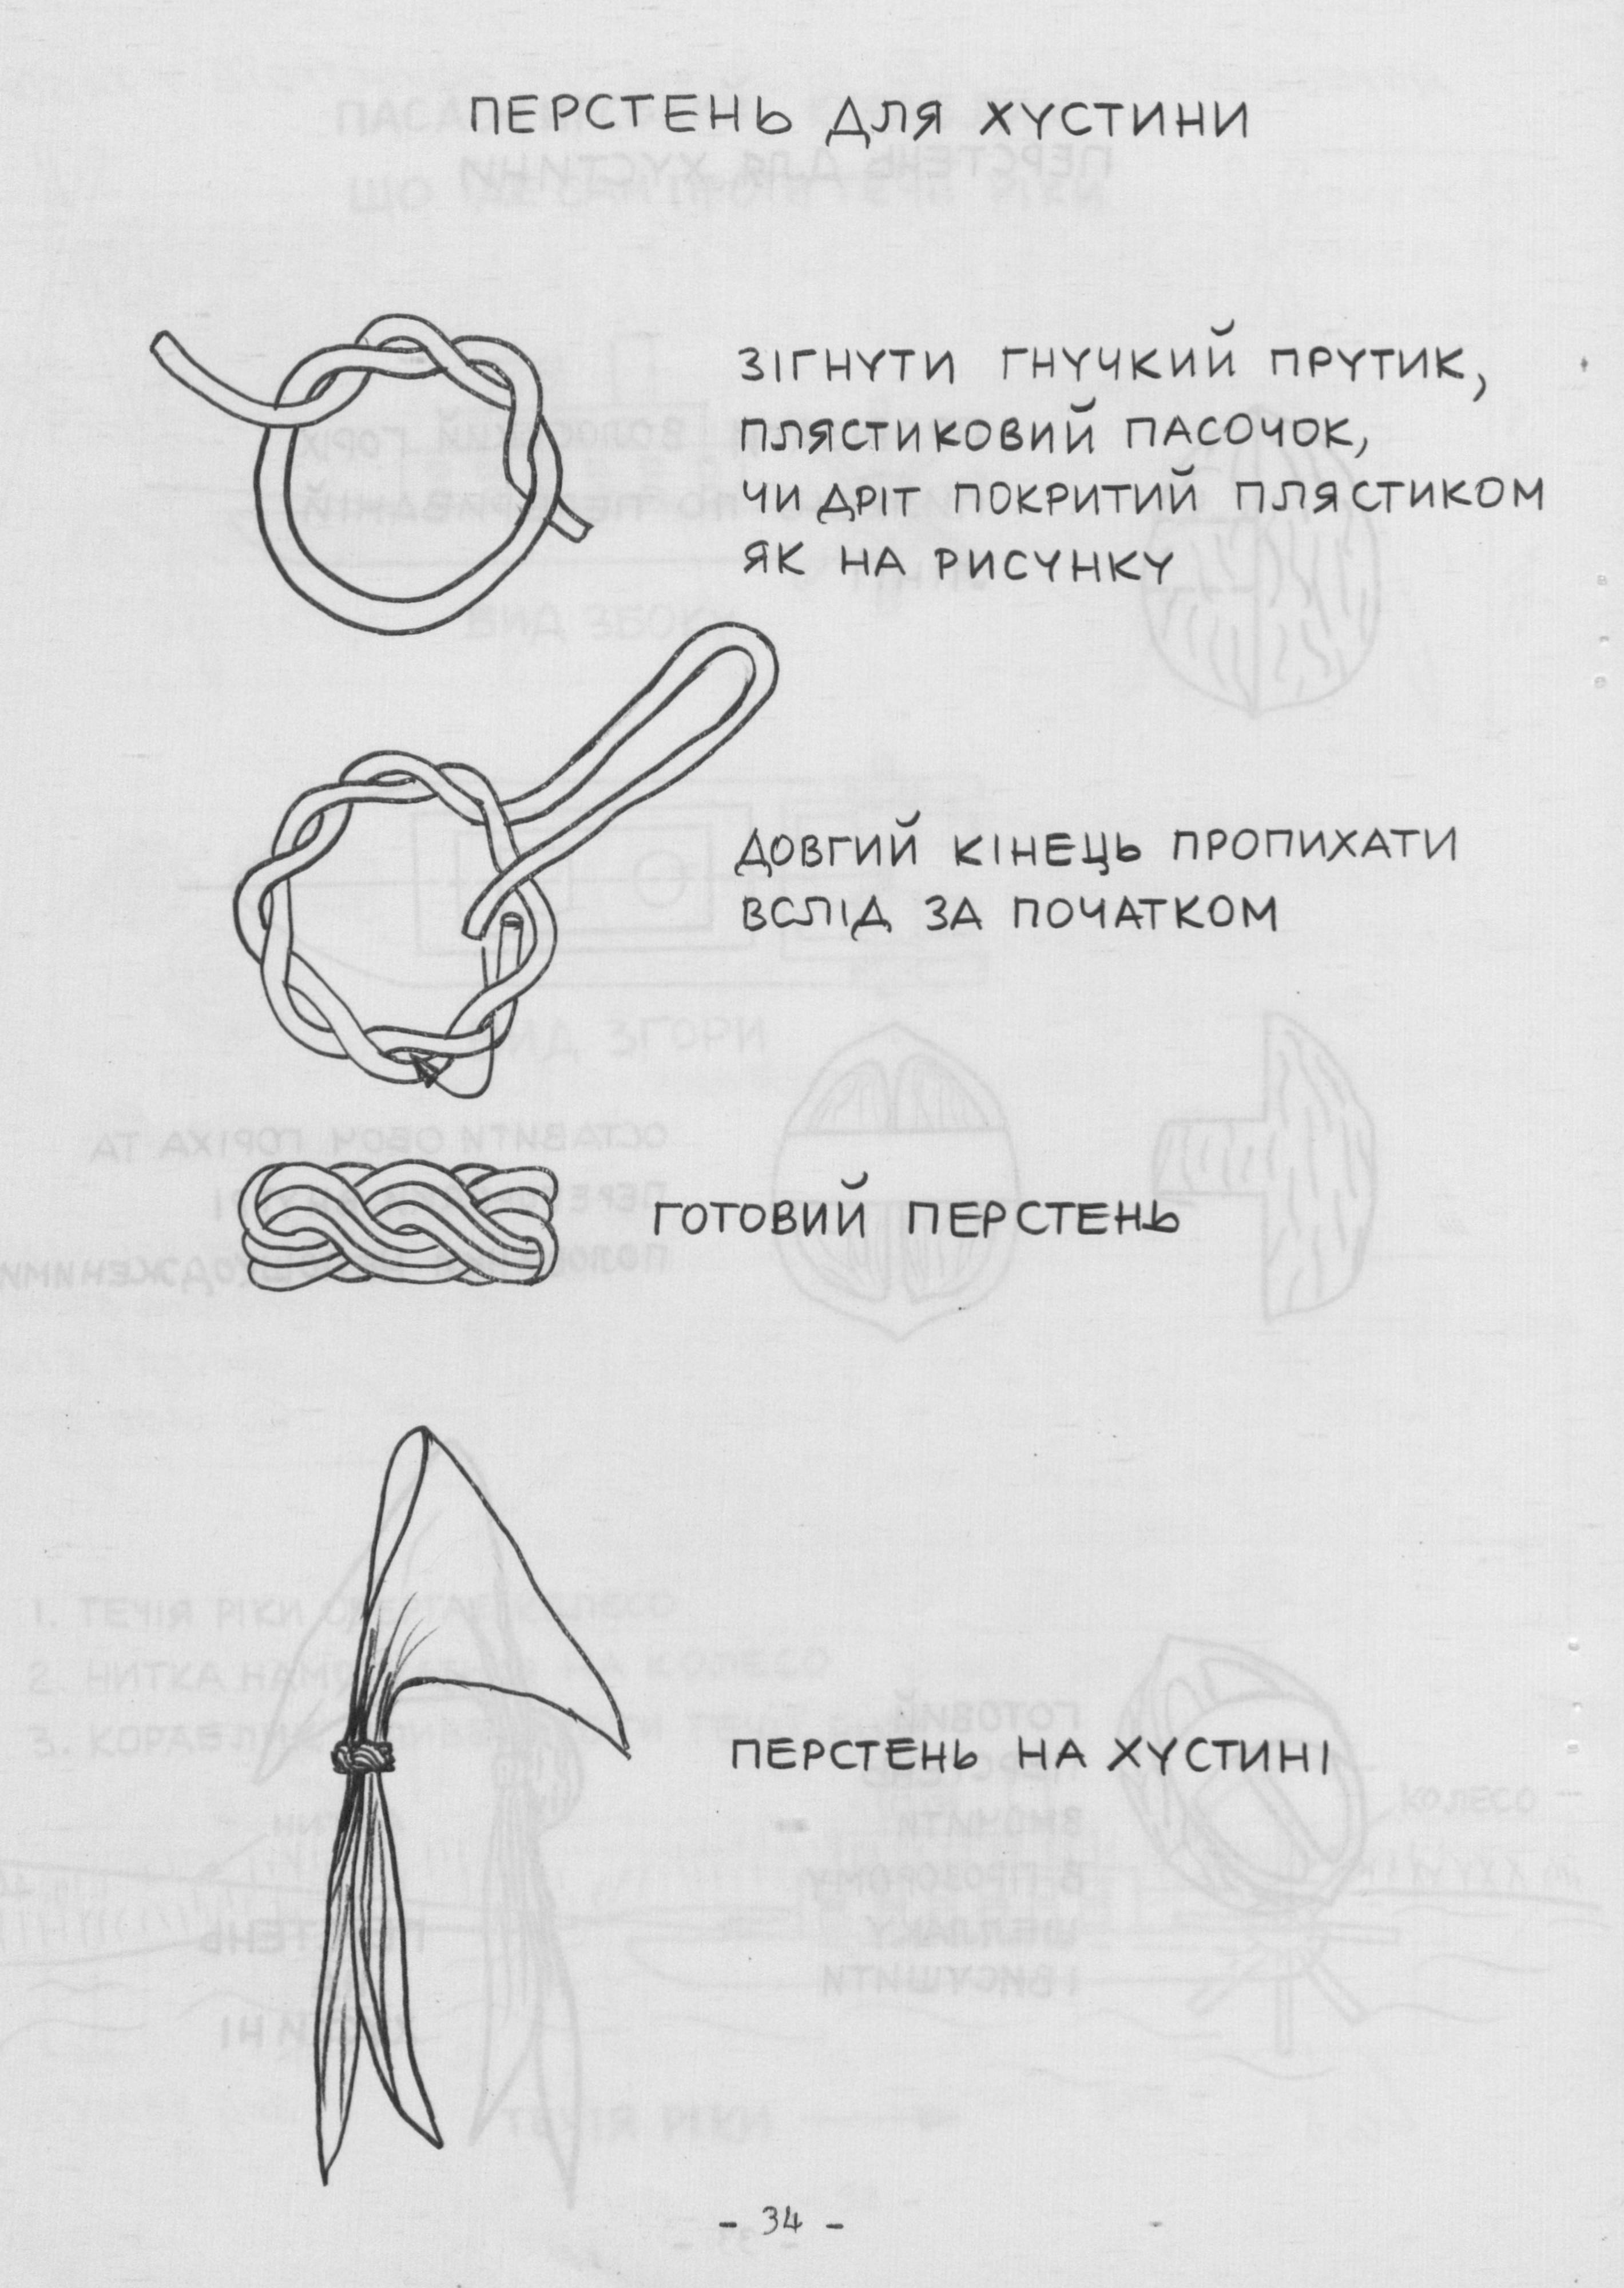 ПЕРСТЕНЬ ДЛЯ ХУСТИНИ
ЗІГНУТИ ГНУЧКИЙ ПРУТИК,
ПЛЯСТИКОВИЙ ПАСОЧОК,
ЧИ ДРІТ ПОКРИТИЙ ПЛЯСТИКОМ
ЯК НА РИСУНКУ
ДОВГИЙ КІНЕЦЬ ПРОПИХАТИ
ВСЛІД ЗА ПОЧАТКОМ
ГОТОВИЙ ПЕРСТЕНЬ
ПЕРСТЕНЬ НА ХУСТИНІ
- 34 -